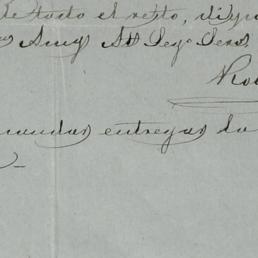 de todo el resto, disp
Amg Att Seg. Serv.
Ro
mandar entregar la